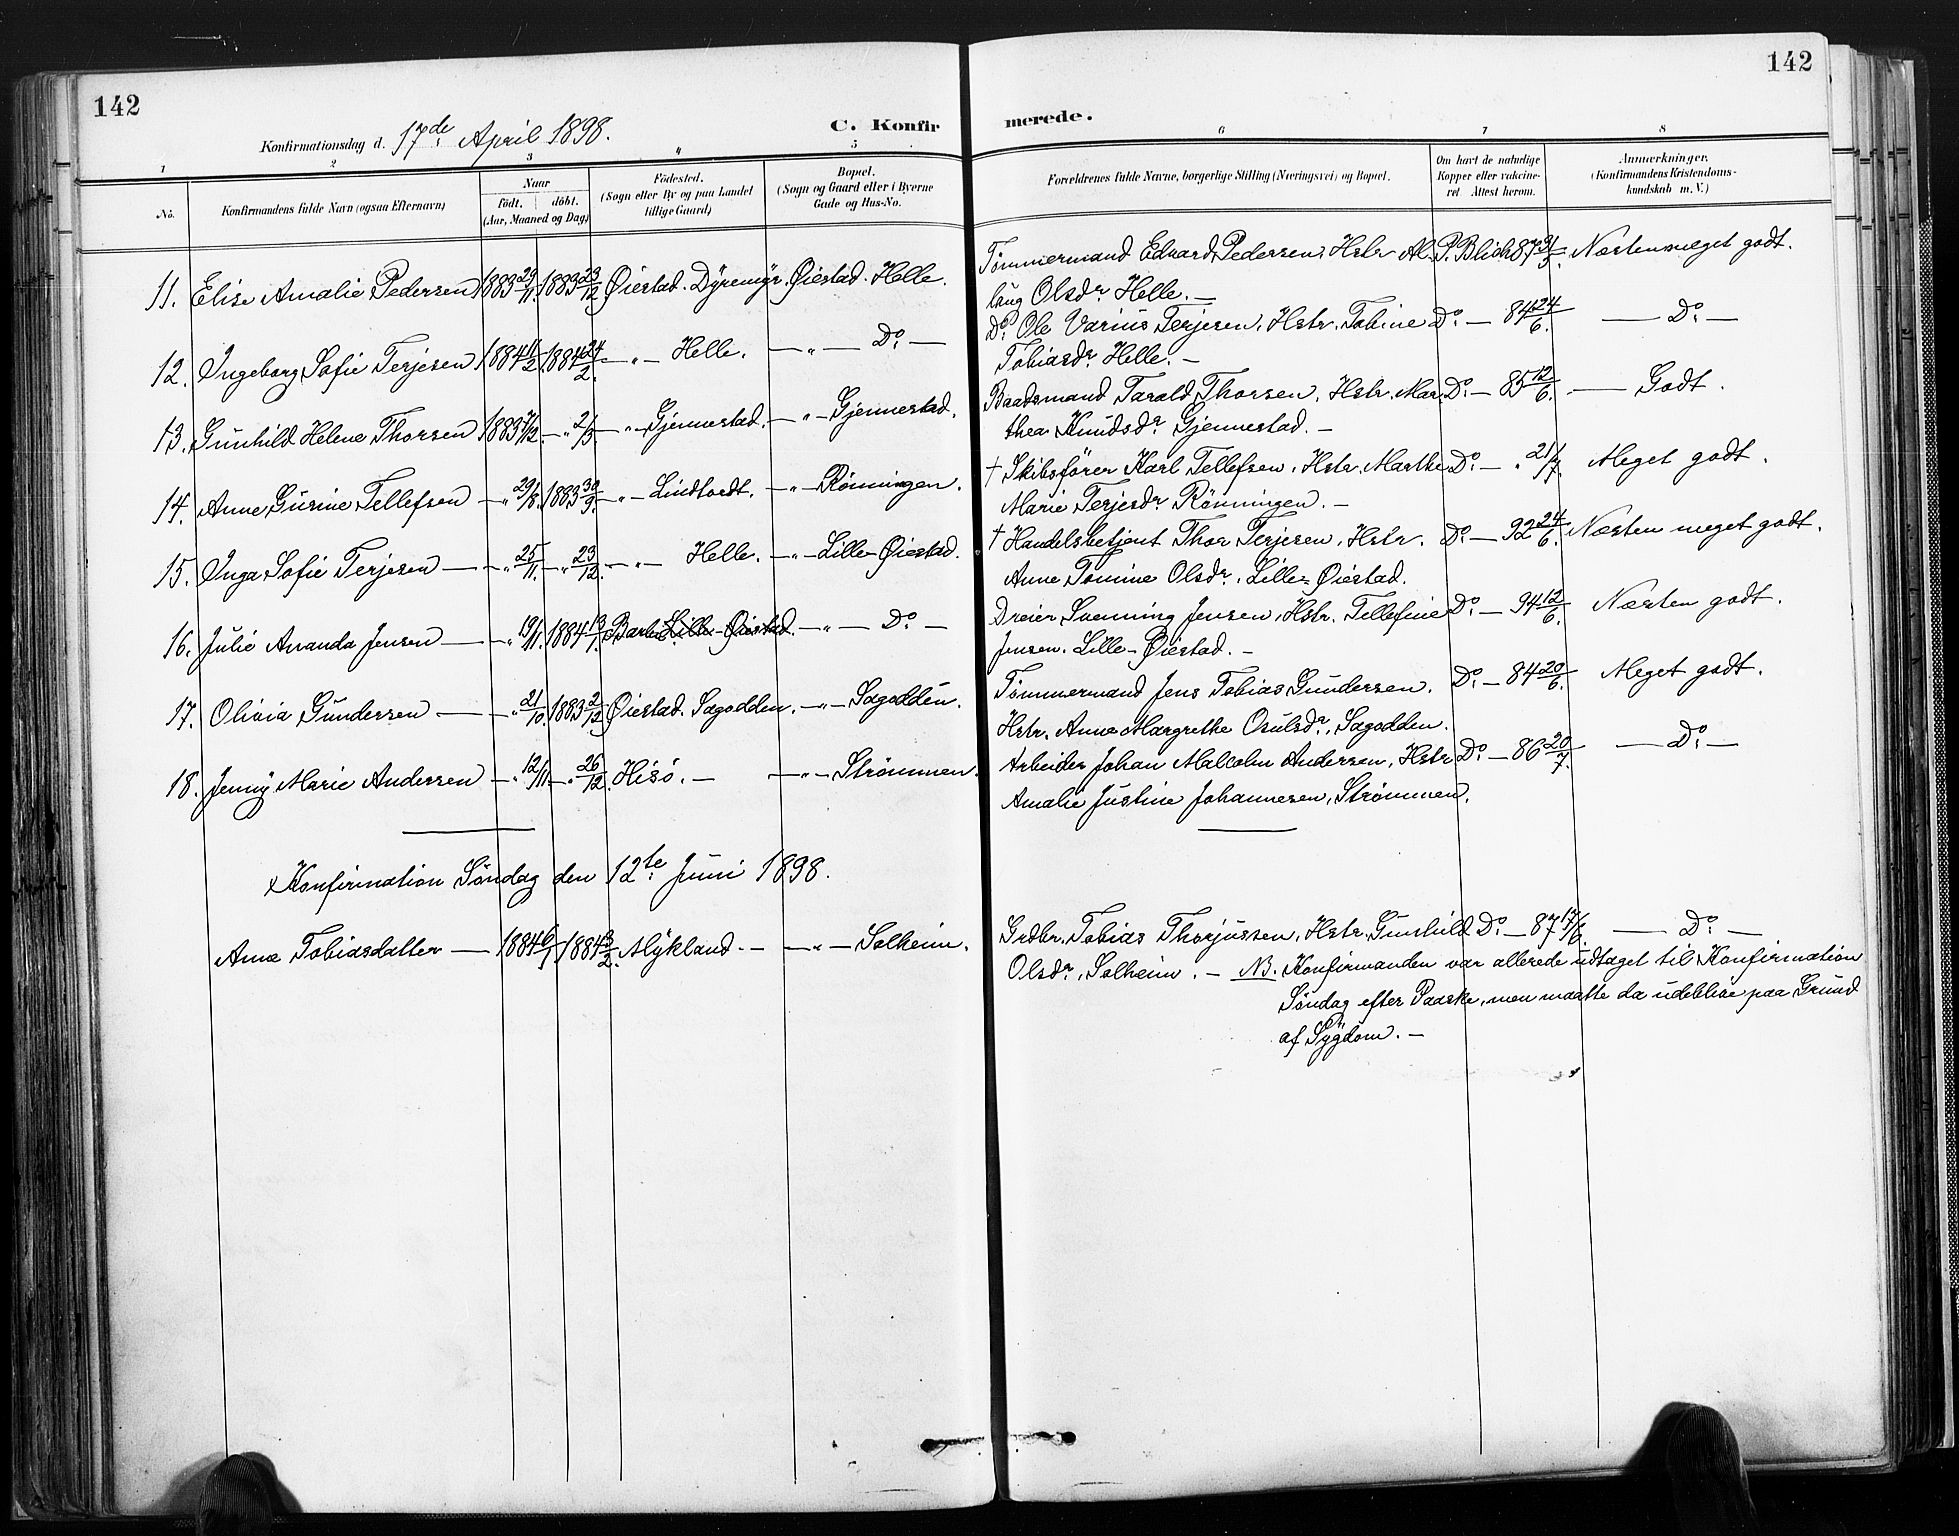 142
142
Konfirmationsdag d. 17de April 1898.
C. Konfirmerede.
1 2 3 4 5 6 7 8
No.
Konfirmandens fulde Navn (ogsaa Efternavn)
Naar
födt. döbt.
(Aar, Maaned og Dag)
Födested.
(Sogn eller By og paa Landet
tillige Gaard)
Bopæl.
(Sogn og Gaard eller i Byerne
Gade og Hus-No.
Forældrenes fulde Navne, borgerlige Stilling (Næringsvei) og Bopæl.
Om havt de naturlige
Kopper eller vakcine-
ret Attest herom.
Anmærkninger.
(Konfirmandens Kristendoms-
kundskab m. V.)
11. Elise Amalie Pedersen 1883 29/11. 1883 23/12 Øiestad. Dyremyr. Øiestad. Helle. Tømmermand Eduard Pedersen, Hstr. Al- P. Blich 87 Næsten meget godt.
laug Olsdr. Helle. —
12. Ingeborg Sofie Terjesen 1884 1884 24/2. — „ — Helle. — „ — Do. — Do. Ole Varius Terjesen, Hstr. Tobine Do. — 84 24/6. — Do. —
Tobiasdr. Helle. —
13. Gunhild Helene Thorsen 1883 — „ 2/3 — „ — Gjennestad. — „ — Gjennestad. Baadsmand Tarald Thorsen, Hstr. Mar- Do. — 85 12/6. — Godt.
thea Knudsdr. Gjennestad. —
14. Anne Gurine Tellefsen — „ 29/8. 1883 30/9. — „ — Lindtvedt. — „ — Rönningen. † Skibsfører Karl Tellefsen, Hstr. Marthe Do. — „ 21/7. Meget godt.
Marie Terjesdr. Rönningen. —
15. Inga Sofie Terjesen — — „ 25/11. — „ 23/12. — „ — Helle. — „ — Lille-Øiestad. † Handelsbetjent Thor Terjesen, Hstr. Do. — 92 24/6. Næsten meget godt.
Anne Tomine Olsdr. Lille-Øiestad.
16. Julie Amanda Jensen — — „ 19/11. 1884 13/1. Barbu. Lille-Øiestad. — „ — Do. — Dreier Svenning Jensen, Hstr. Tellefine Do. — 94 12/6. Næsten godt.
Jensen. Lille-Øiestad. —
17. Olivia Gundersen — — „ 21/10. 1883 2/12 Øiestad. Sagodden. — „ — Sagodden. Tømmermand Jens Tobias Gundersen. Do. — 84 20/6. Meget godt.
Hstr. Anne Margrethe Osulsdr. Sagodden.
18. Jenny Marie Andersen — „ 12/11. — „ 26/12. Hisö. — — „ — Strömmen. Arbeider Johan Malcolm Andersen, Hstr Do. — 86 20/7. — Do. —
Amalie Justine Johannesen, Strömmen.
Konfirmation Söndag den 12te Juni 1898.
Anne Tobiasdatter — 1884 6/1 1884 3/2. Mykland. — — „ — Solheim. Grdbr. Tobias Thorjussen, Hstr. Gunhild Do. — 87 17/6. — Do. —
Olsdr., Solheim. — NB. Konfirmanden var allerede udtaget til Konfirmation
Søndag efter Paaske, men maatte da udeblive paa Grund
af Sygdom. —